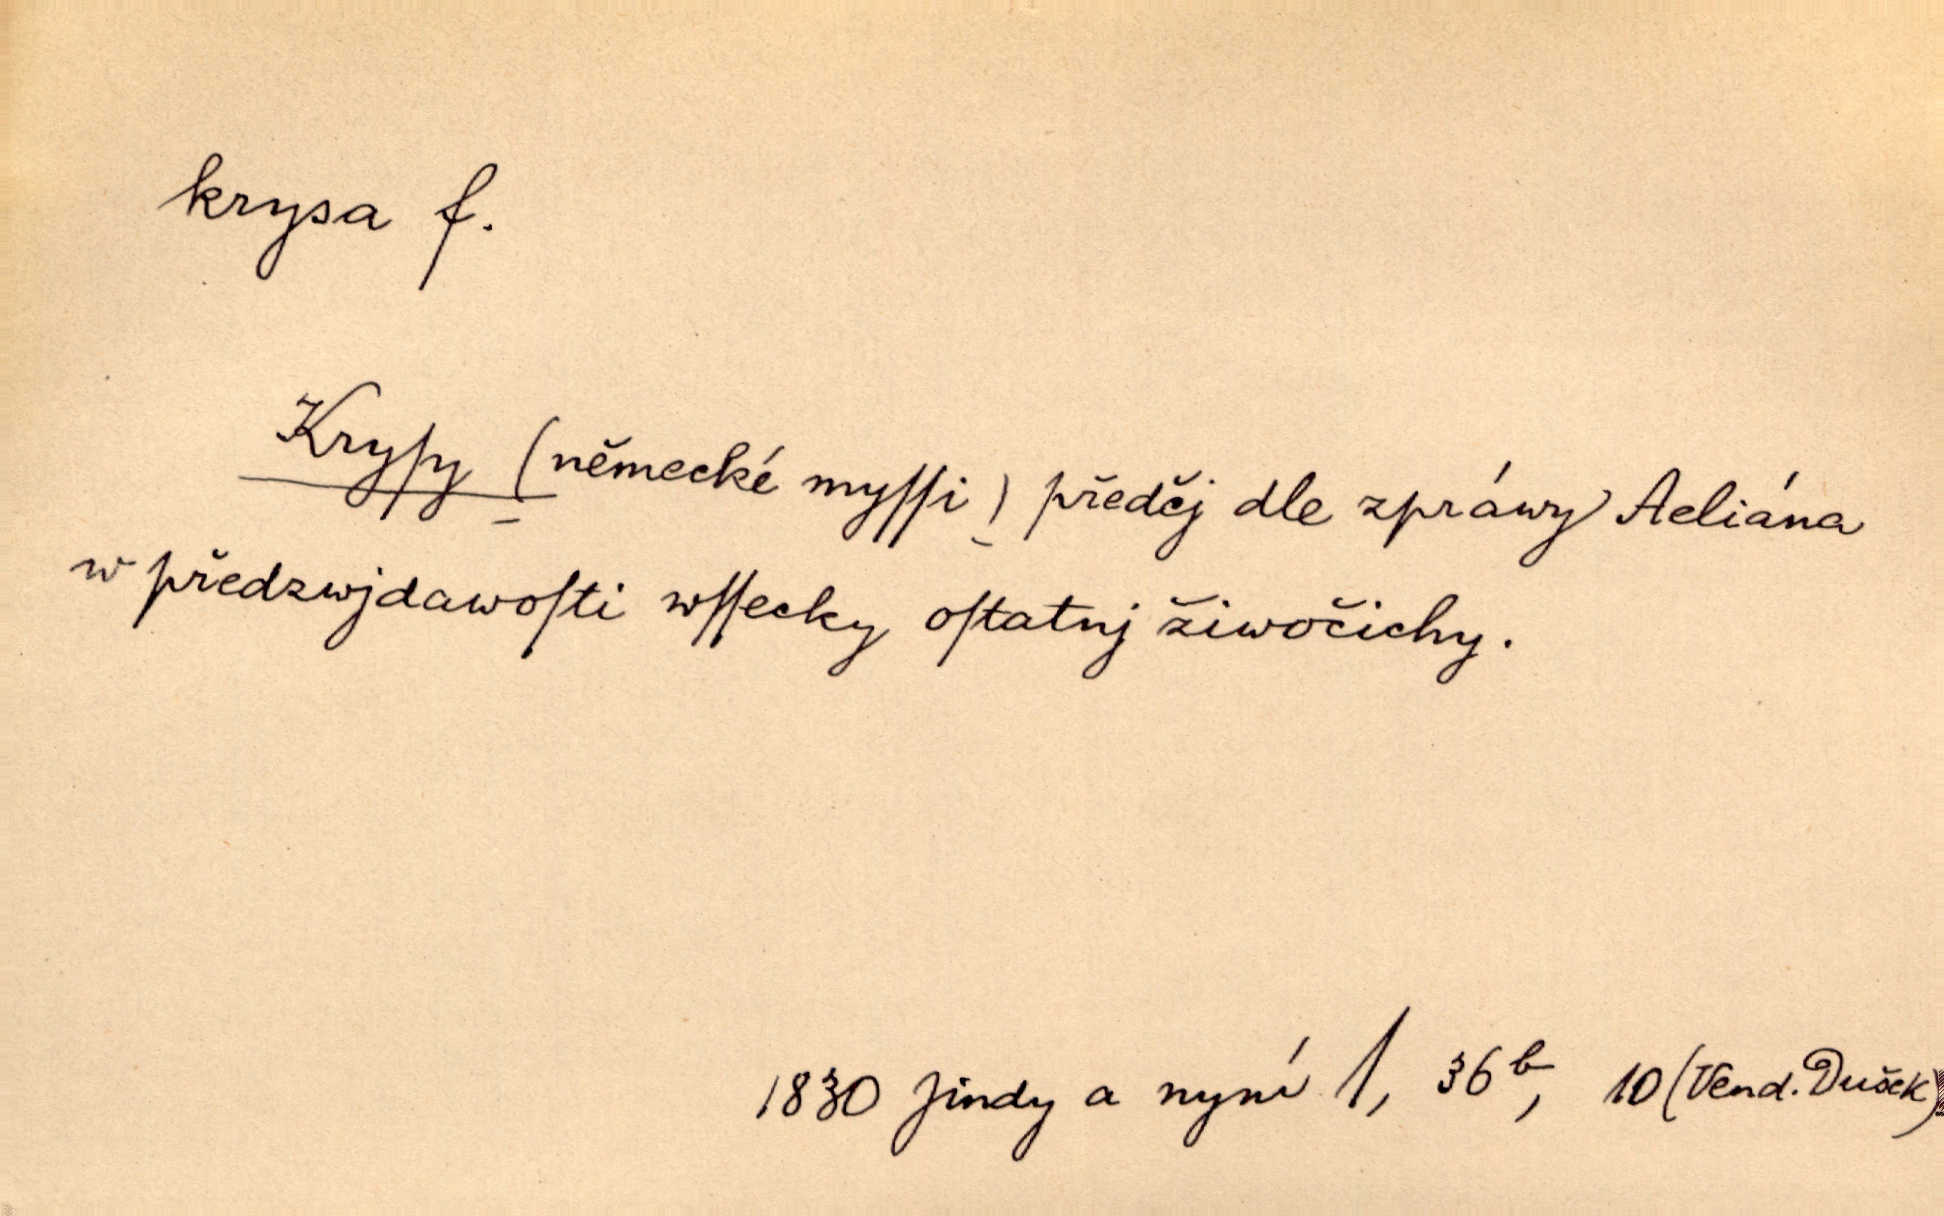 krysa f.
Kryſy (německé myſſi) předčj dle zpráwy Aeliána
w předzwjdawoſti wſſecky oſtatnj žiwočichy.
1830 Jindy a nyní 1, 36 b, 10 (Vend. Dušek)